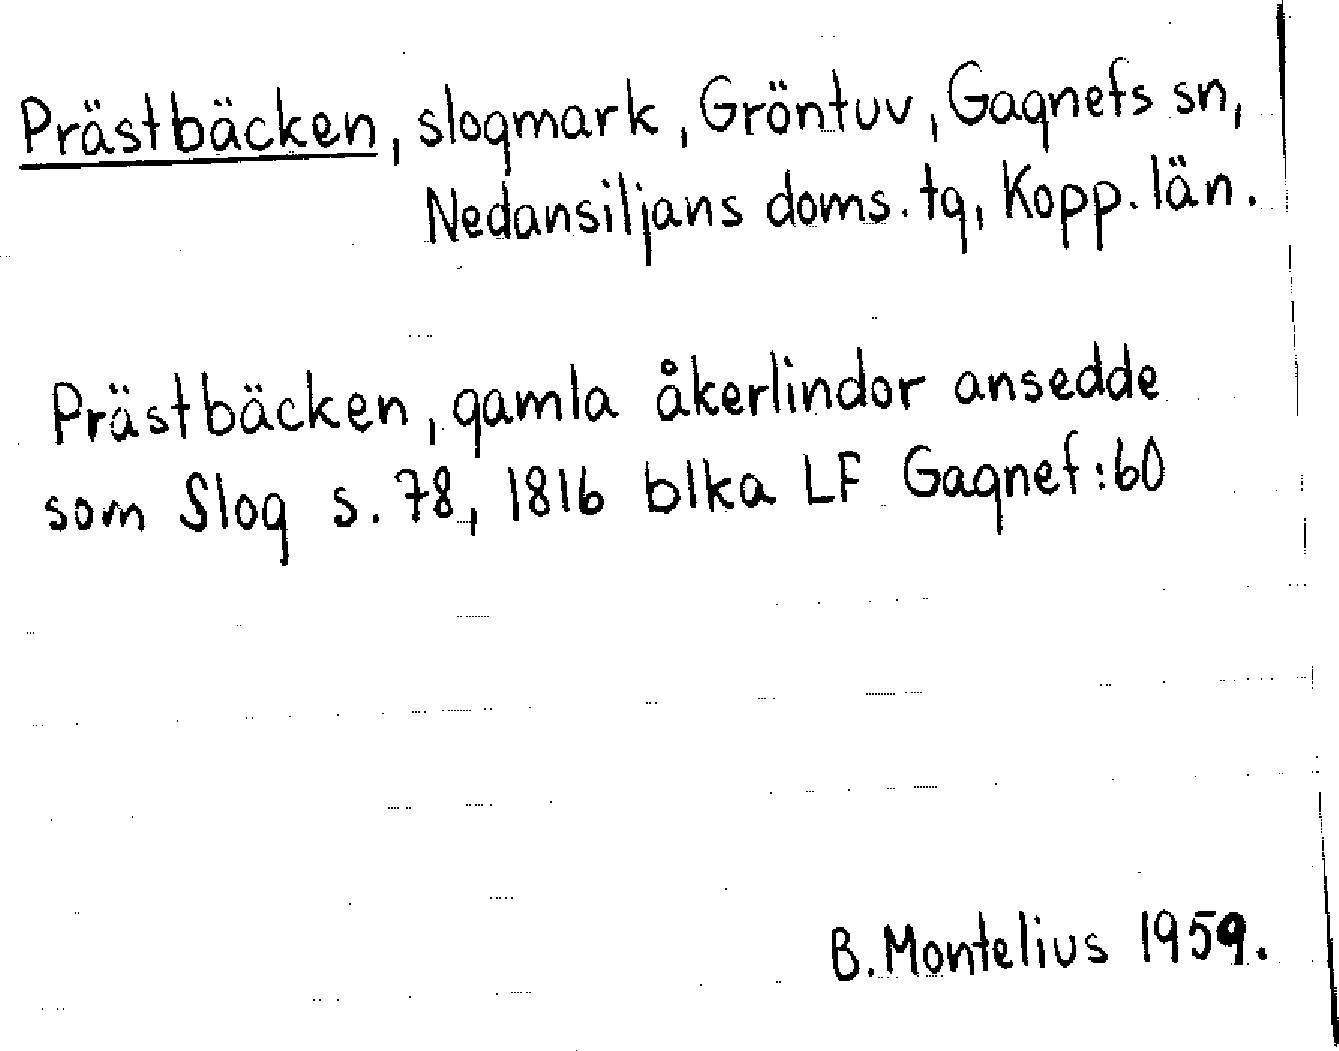 Prästbäcken, slogmark, Gröntuv, Gagnefs sn,
Nedansiljans doms. tg, Kopp. län.
Prästbäcken, gamla åkerlindor ansedde
som Slog s. 78, 1816 blka LF Gagnef:60
B. Montelius 1959.